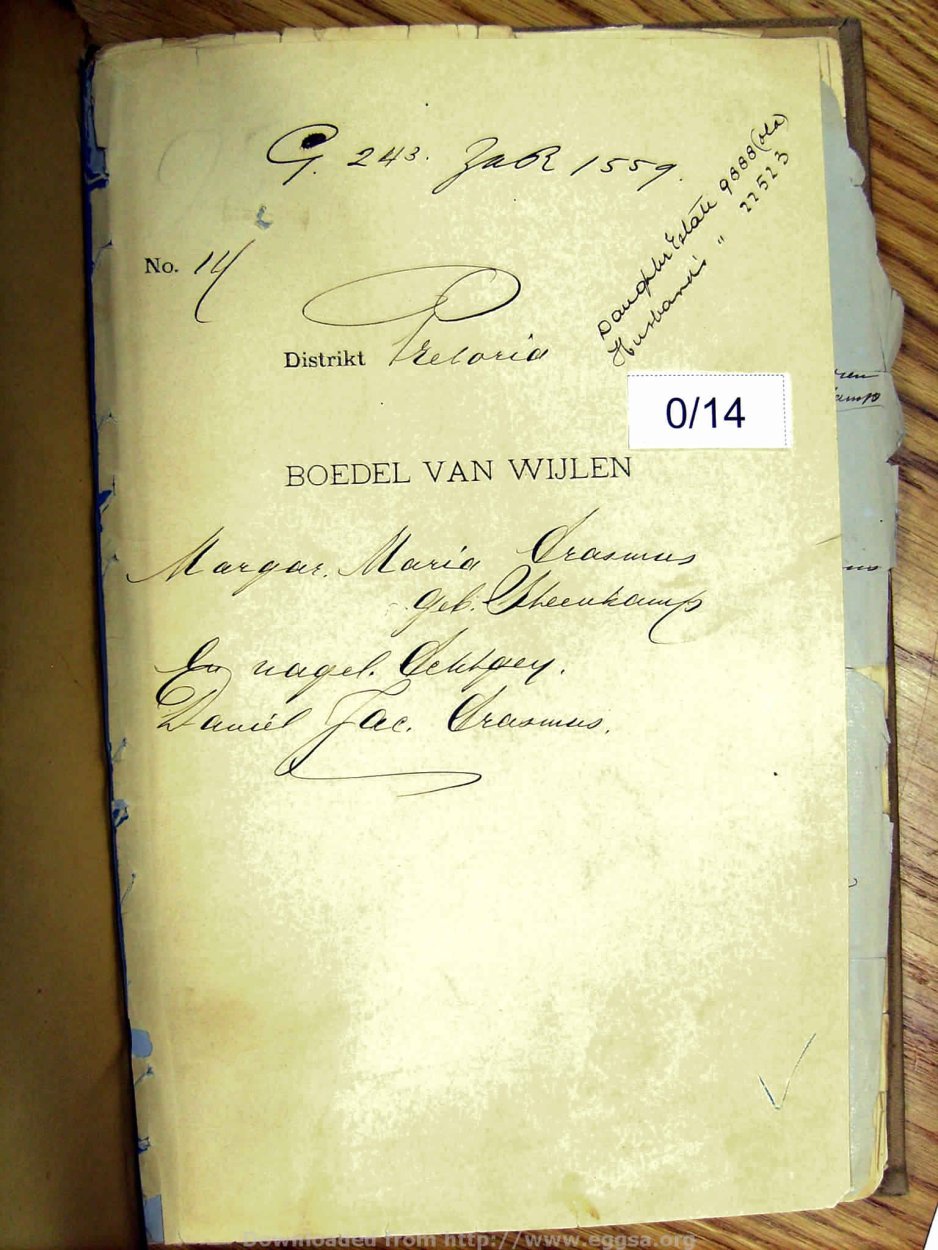 G. 243. ZAR 1559.
Daughter Estate 9888 (old)
Husband's " 22523
No. 14
Distrikt Pretoria
0/14
BOEDEL VAN WIJLEN
Margar. Maria Erasmus
geb. Steenkamp
En nagel. Echtgen.
Daniel Jac. Erasmus.
Downloaded from http://www.eggsa.org